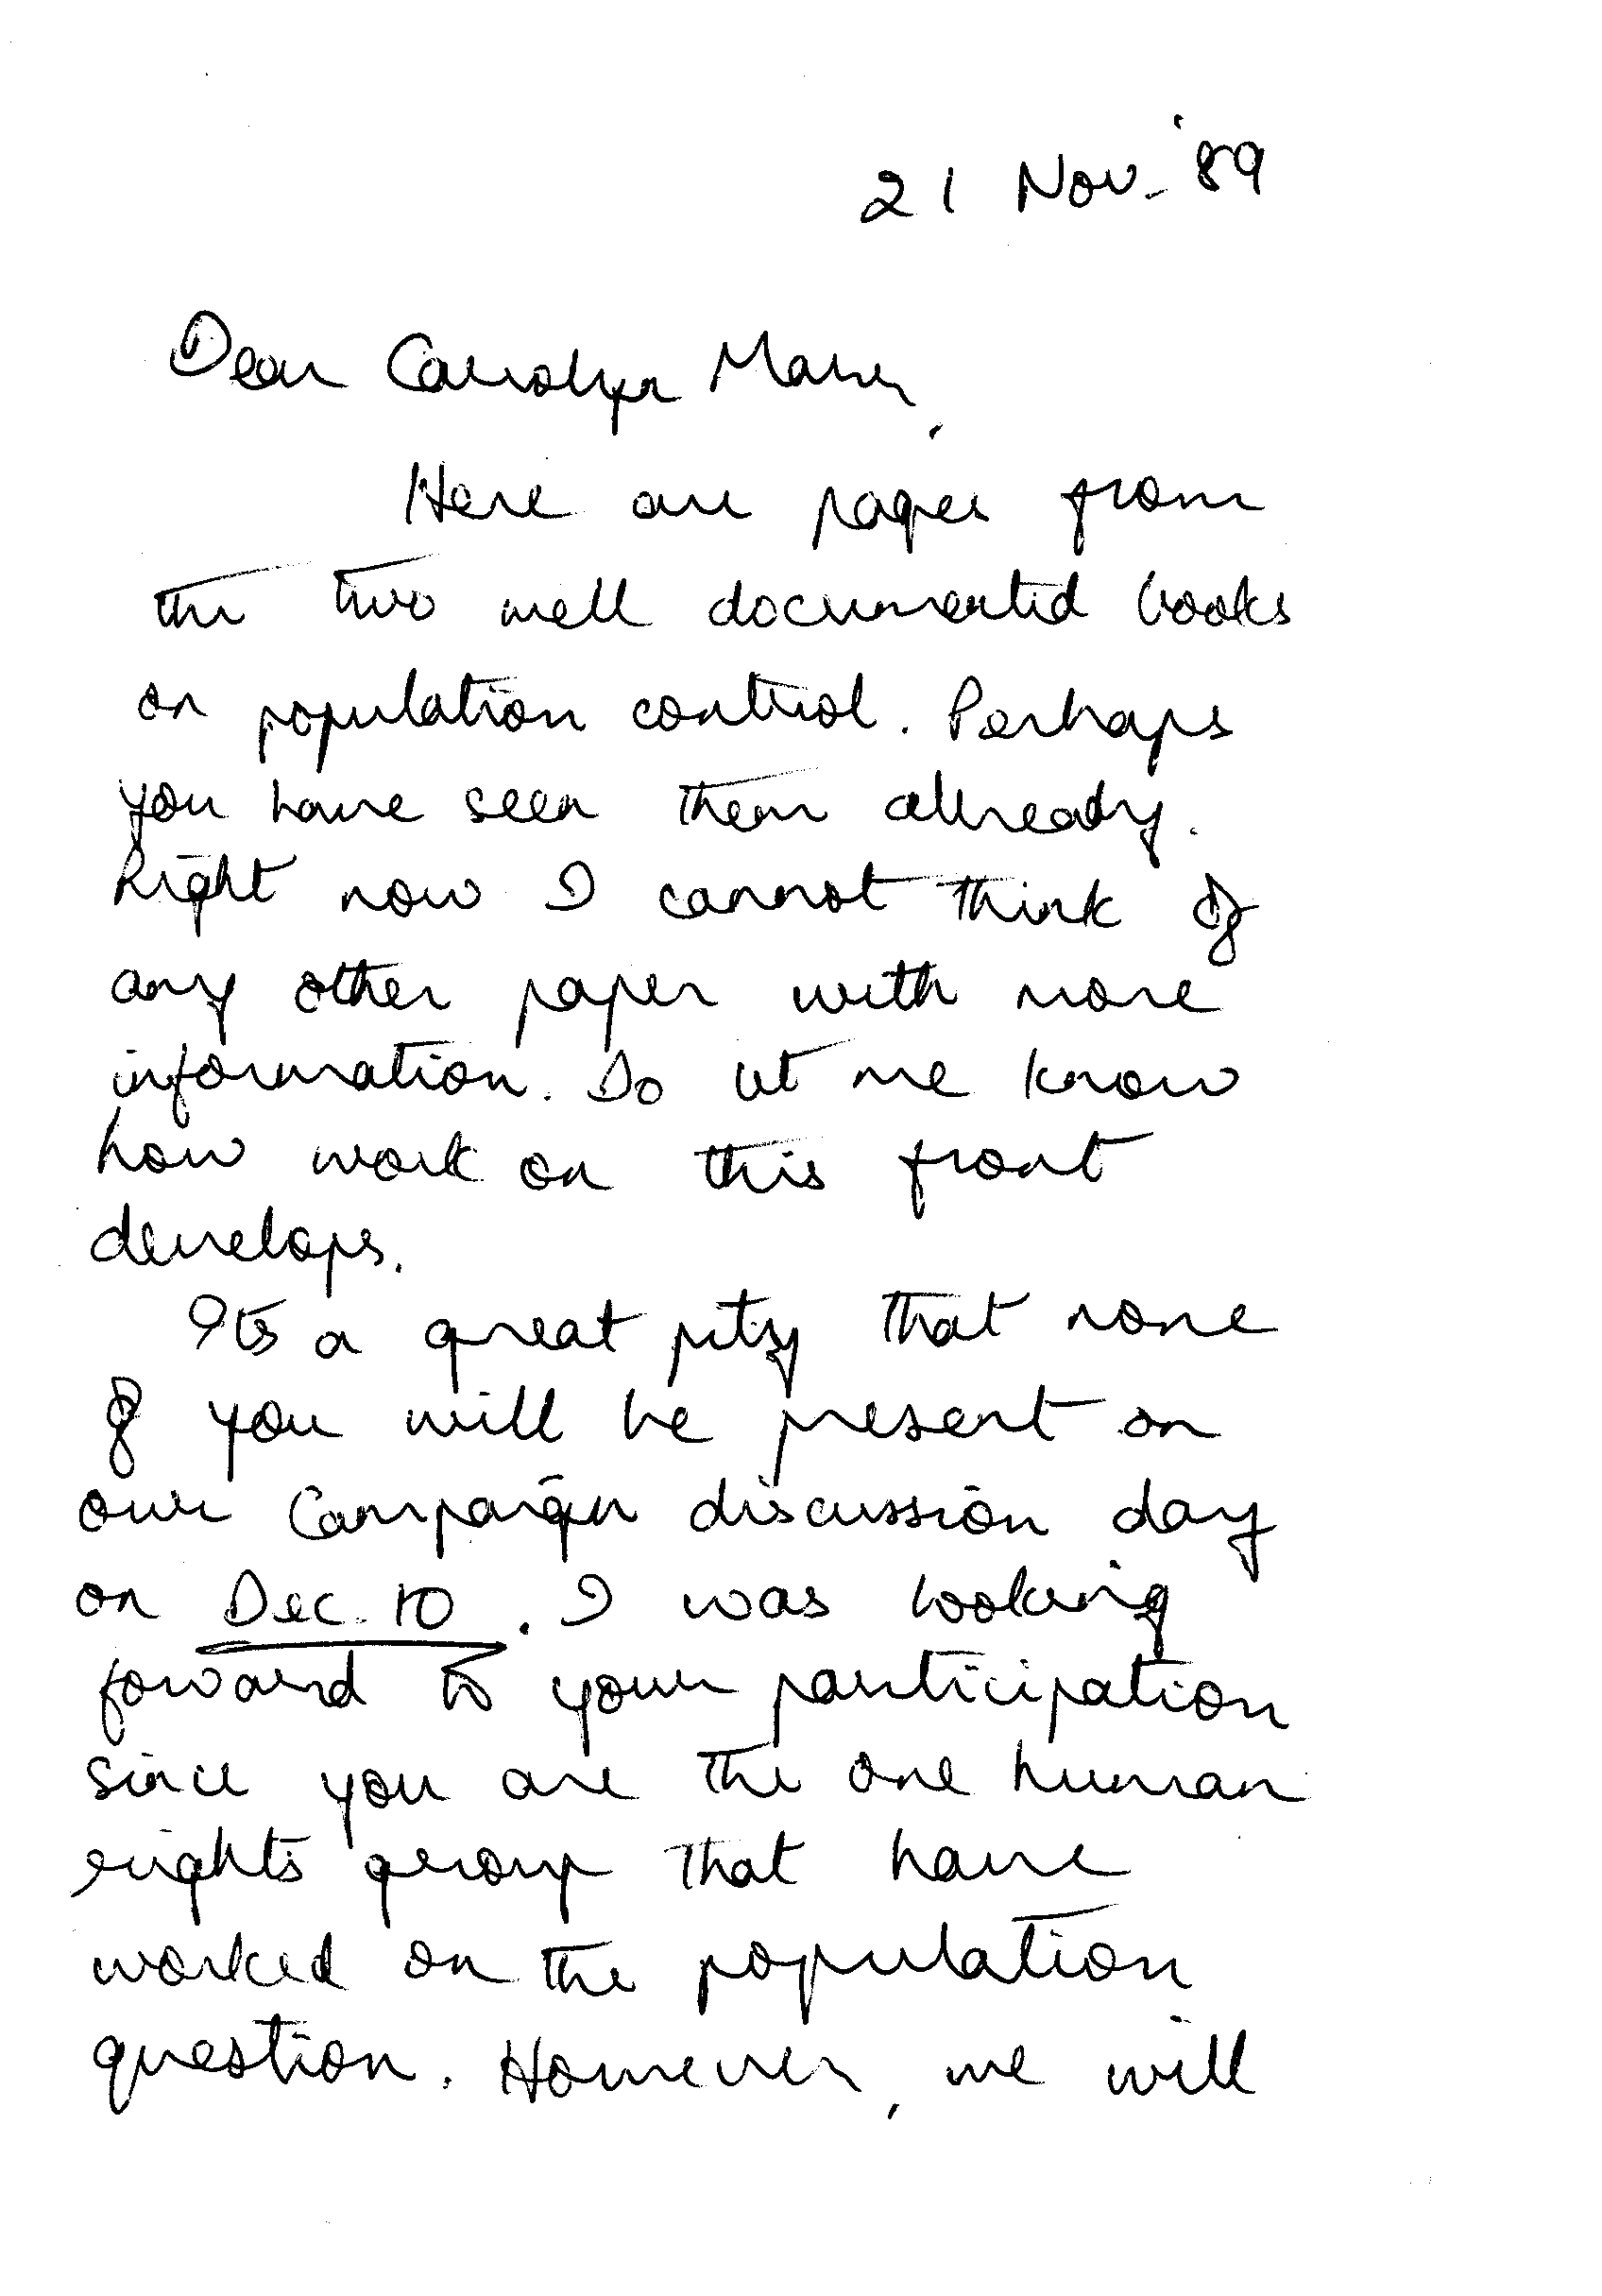 21 Nov. '89
Dear Carolyn
Here are pages from
the two well documented books
on population control. Perhaps
you have seen them already.
Right now I cannot think of
any other paper with more
information. Do let me know
how work on this front
develops.
Its a great pity that none
of you will be present on
our Campaign discussion day
on Dec. 10. I was looking
forward to your participation
since you are the one human
rights group that have
worked on the population
question. However, we will